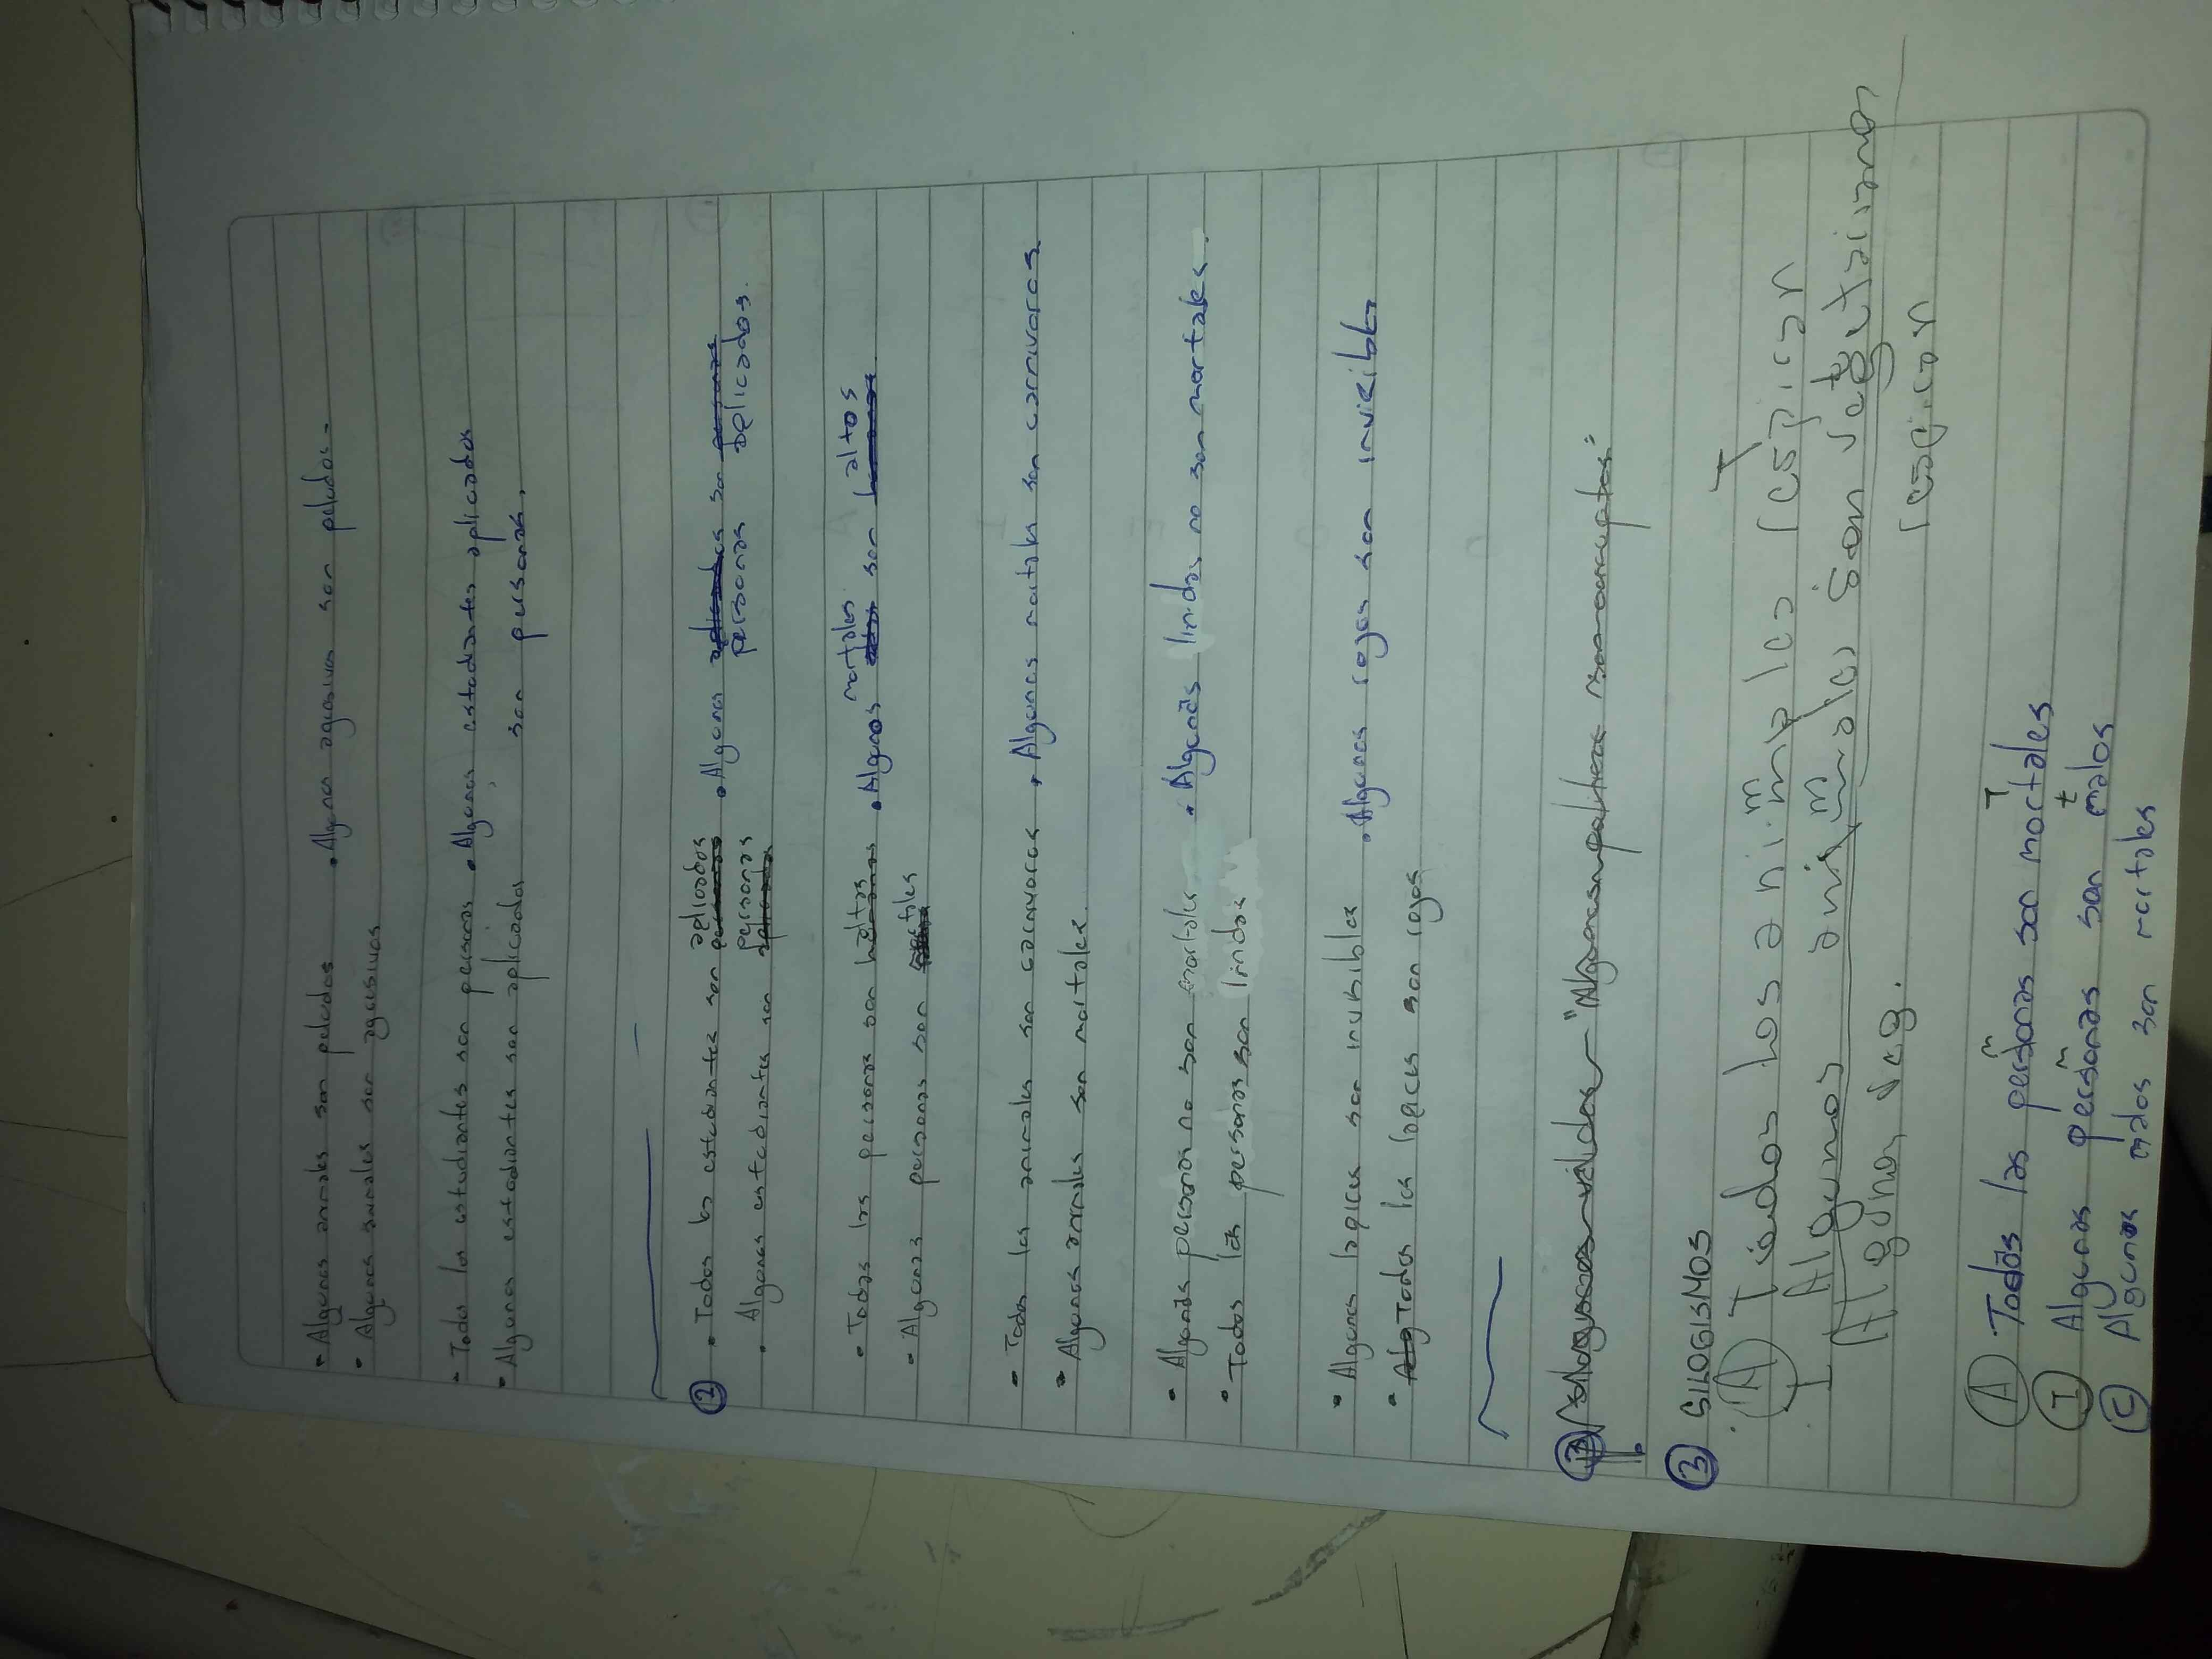 • Algunos animales son peludos . Algunos agresivos son peludos.
• Algunos animales son agresivos
• Todos los estudiantes son personas . Algunos estudiantes aplicados
• Algunos estudiantes son aplicados son personas.
② • Todos los estudiantes son aplicados . Algunas personas son aplicados.
• Algunos estudiantes son personas
• Todas las personas son altas . Algunos mortales son altos
• Algunas personas son mortales
• Todos los animales son carnivoros . Algunos mortales son carnivoros.
• Algunos animales son mortales.
• Algunas personas no son mortales . Algunas lindas no son mortales.
• Todas las personas son lindas
• Algunos lapices son invisibles . Algunos rojos son invisibles
• Todos los lapices son rojos
③ SILOGISMOS
A Todos los animales
I Algunos animales son
Algunos veg.
A Todas las personas son mortales
I Algunas personas son malos
C Algunos malos son mortales